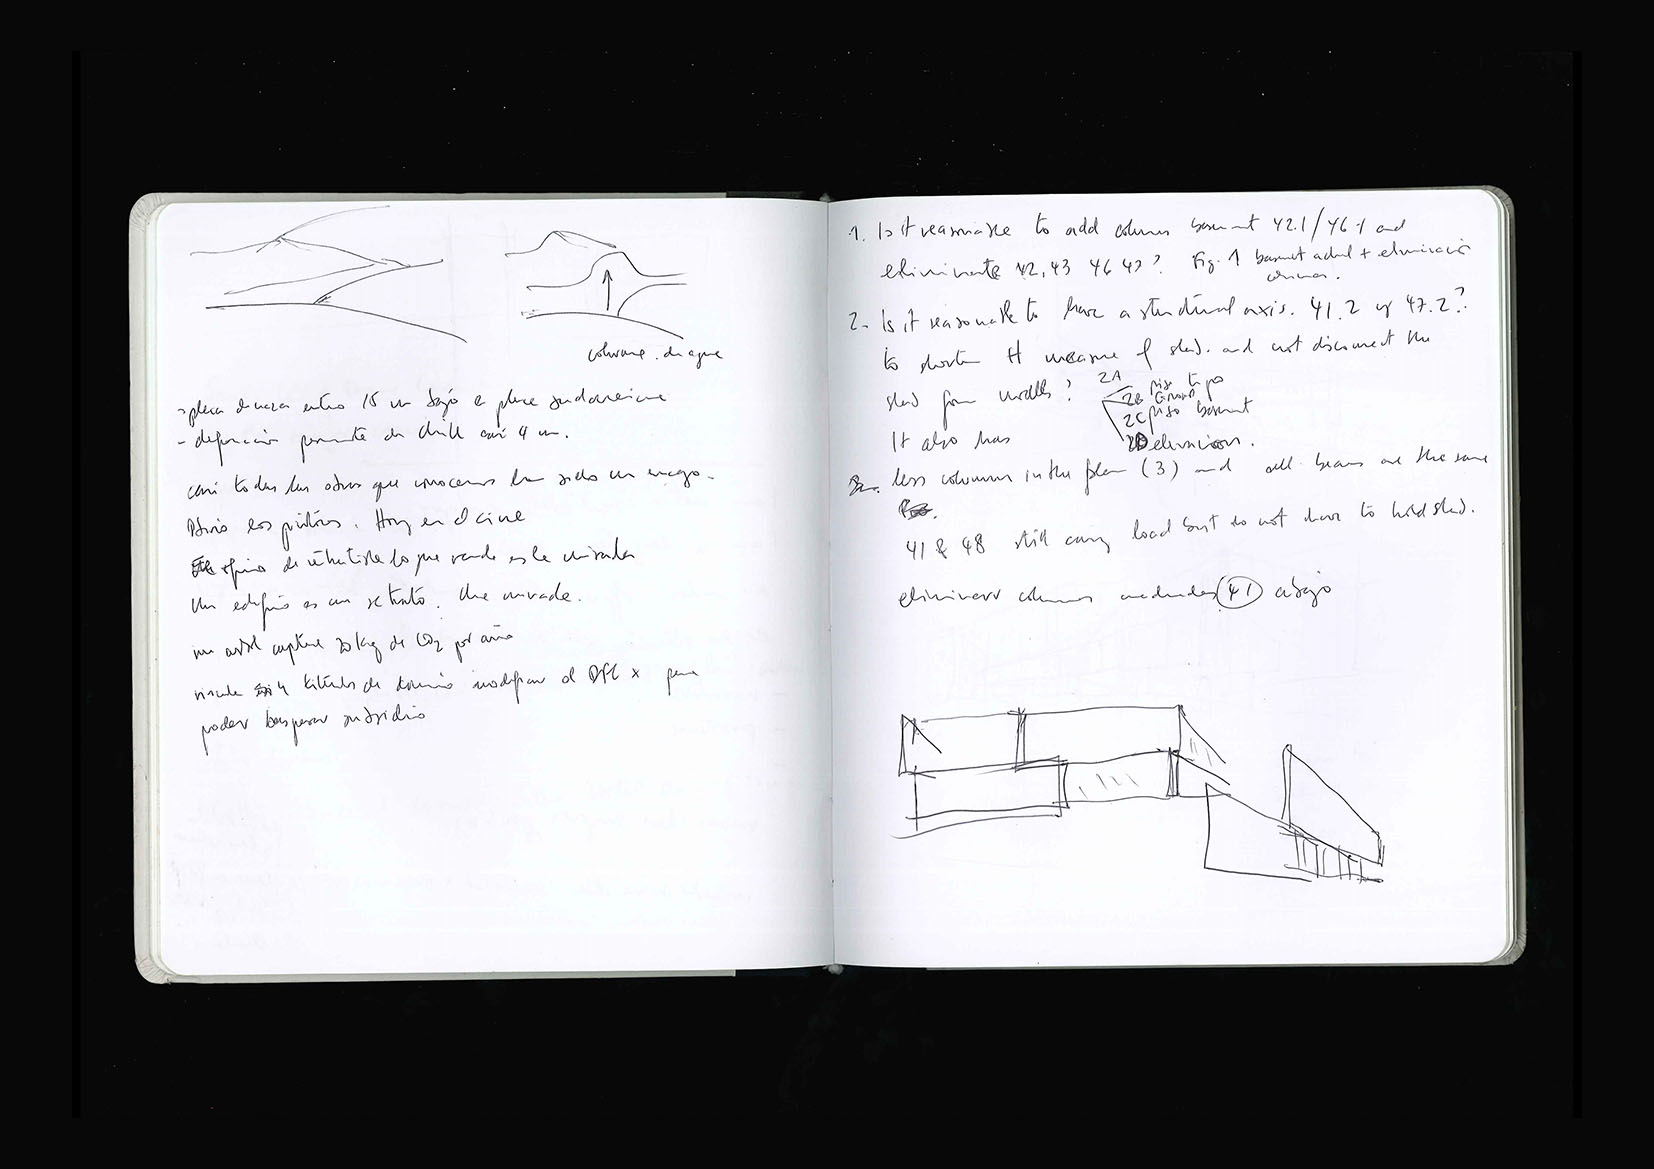 columna de agua
-placa de nazca entro 15 m bajo a placa sudamericana
- deformación permanente de chile casi 4 m.
casi todas las obras que conocemos han sido un encargo.
los pintores. Hoy en el cine
de lo que vende es la mirada
Un edificio es un retrato. Una mirada.
un arbol captura 20 kg de CO2 por año
4 titulos de dominio modificar el DFL x para
poder subsidio
1. Is it reasonable to add columns basement 42.1/46.1 and
eliminate 42, 43 46 47? Fig. 1 basement actual + eliminación
columnas.
2. Is it reasonable to have a structural axis. 41.2 y 47.2?
to shorten measure of slab. and not disconnect the
slab from middle? 2A piso tipo
2B Ground
2C piso basement
It also has 2D elevacion.
less columns in the plan (3) and all beams are the same
41 & 48 still carry load but do not have to hold slab.
eliminar columnas 41 abajo